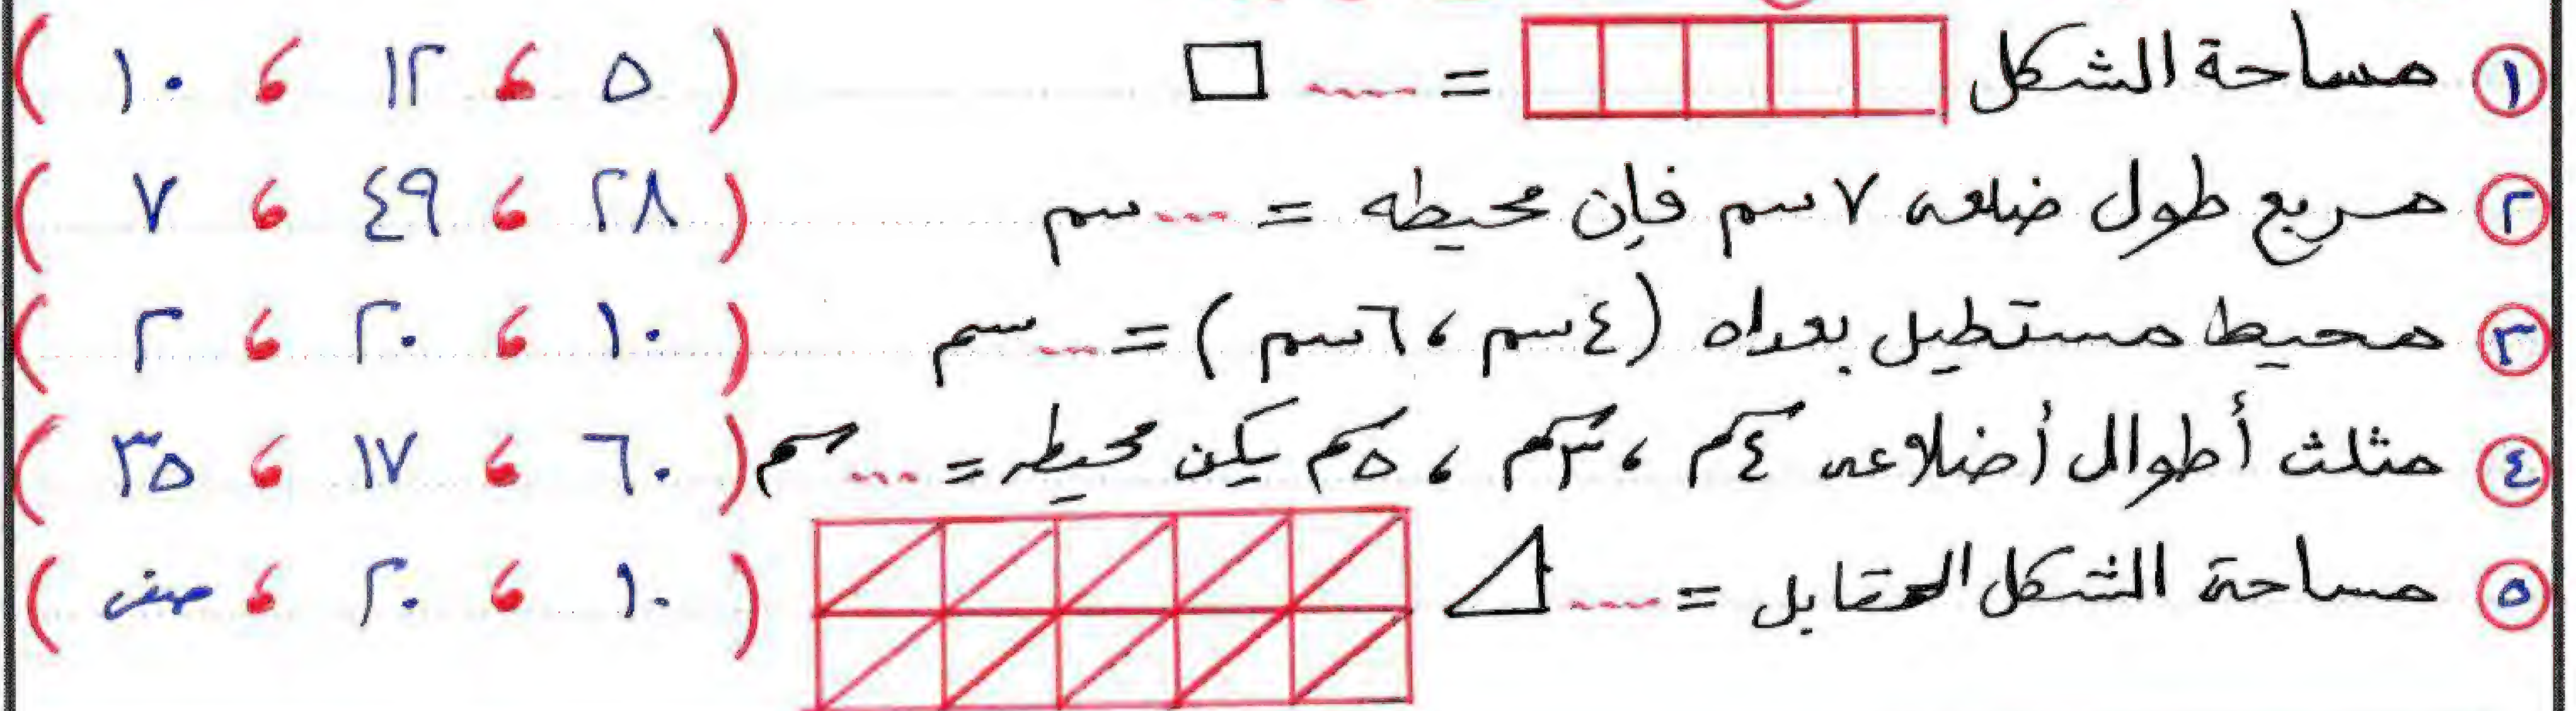 ١ مساحة الشكل = ..... ( ٥ ، ١٢ ، ١٠ )
٢ مربع طول ضلعه ٧ سم فإن محيطه = ... سم ( ٢٨ ، ٤٩ ، ٧ )
٣ محيط مستطيل بعداه ( ٤ سم ، ٦ سم ) = ... سم ( ١٠ ، ٢٠ ، ٢ )
٤ مثلث أطوال أضلاعه ٤ سم ، ٣ سم ، ٥ سم يكن محيطه = ... سم ( ٦٠ ، ١٧ ، ٣٥ )
٥ مساحة الشكل المقابل = ..... ( ١٠ ، ٢٠ ، صفر )